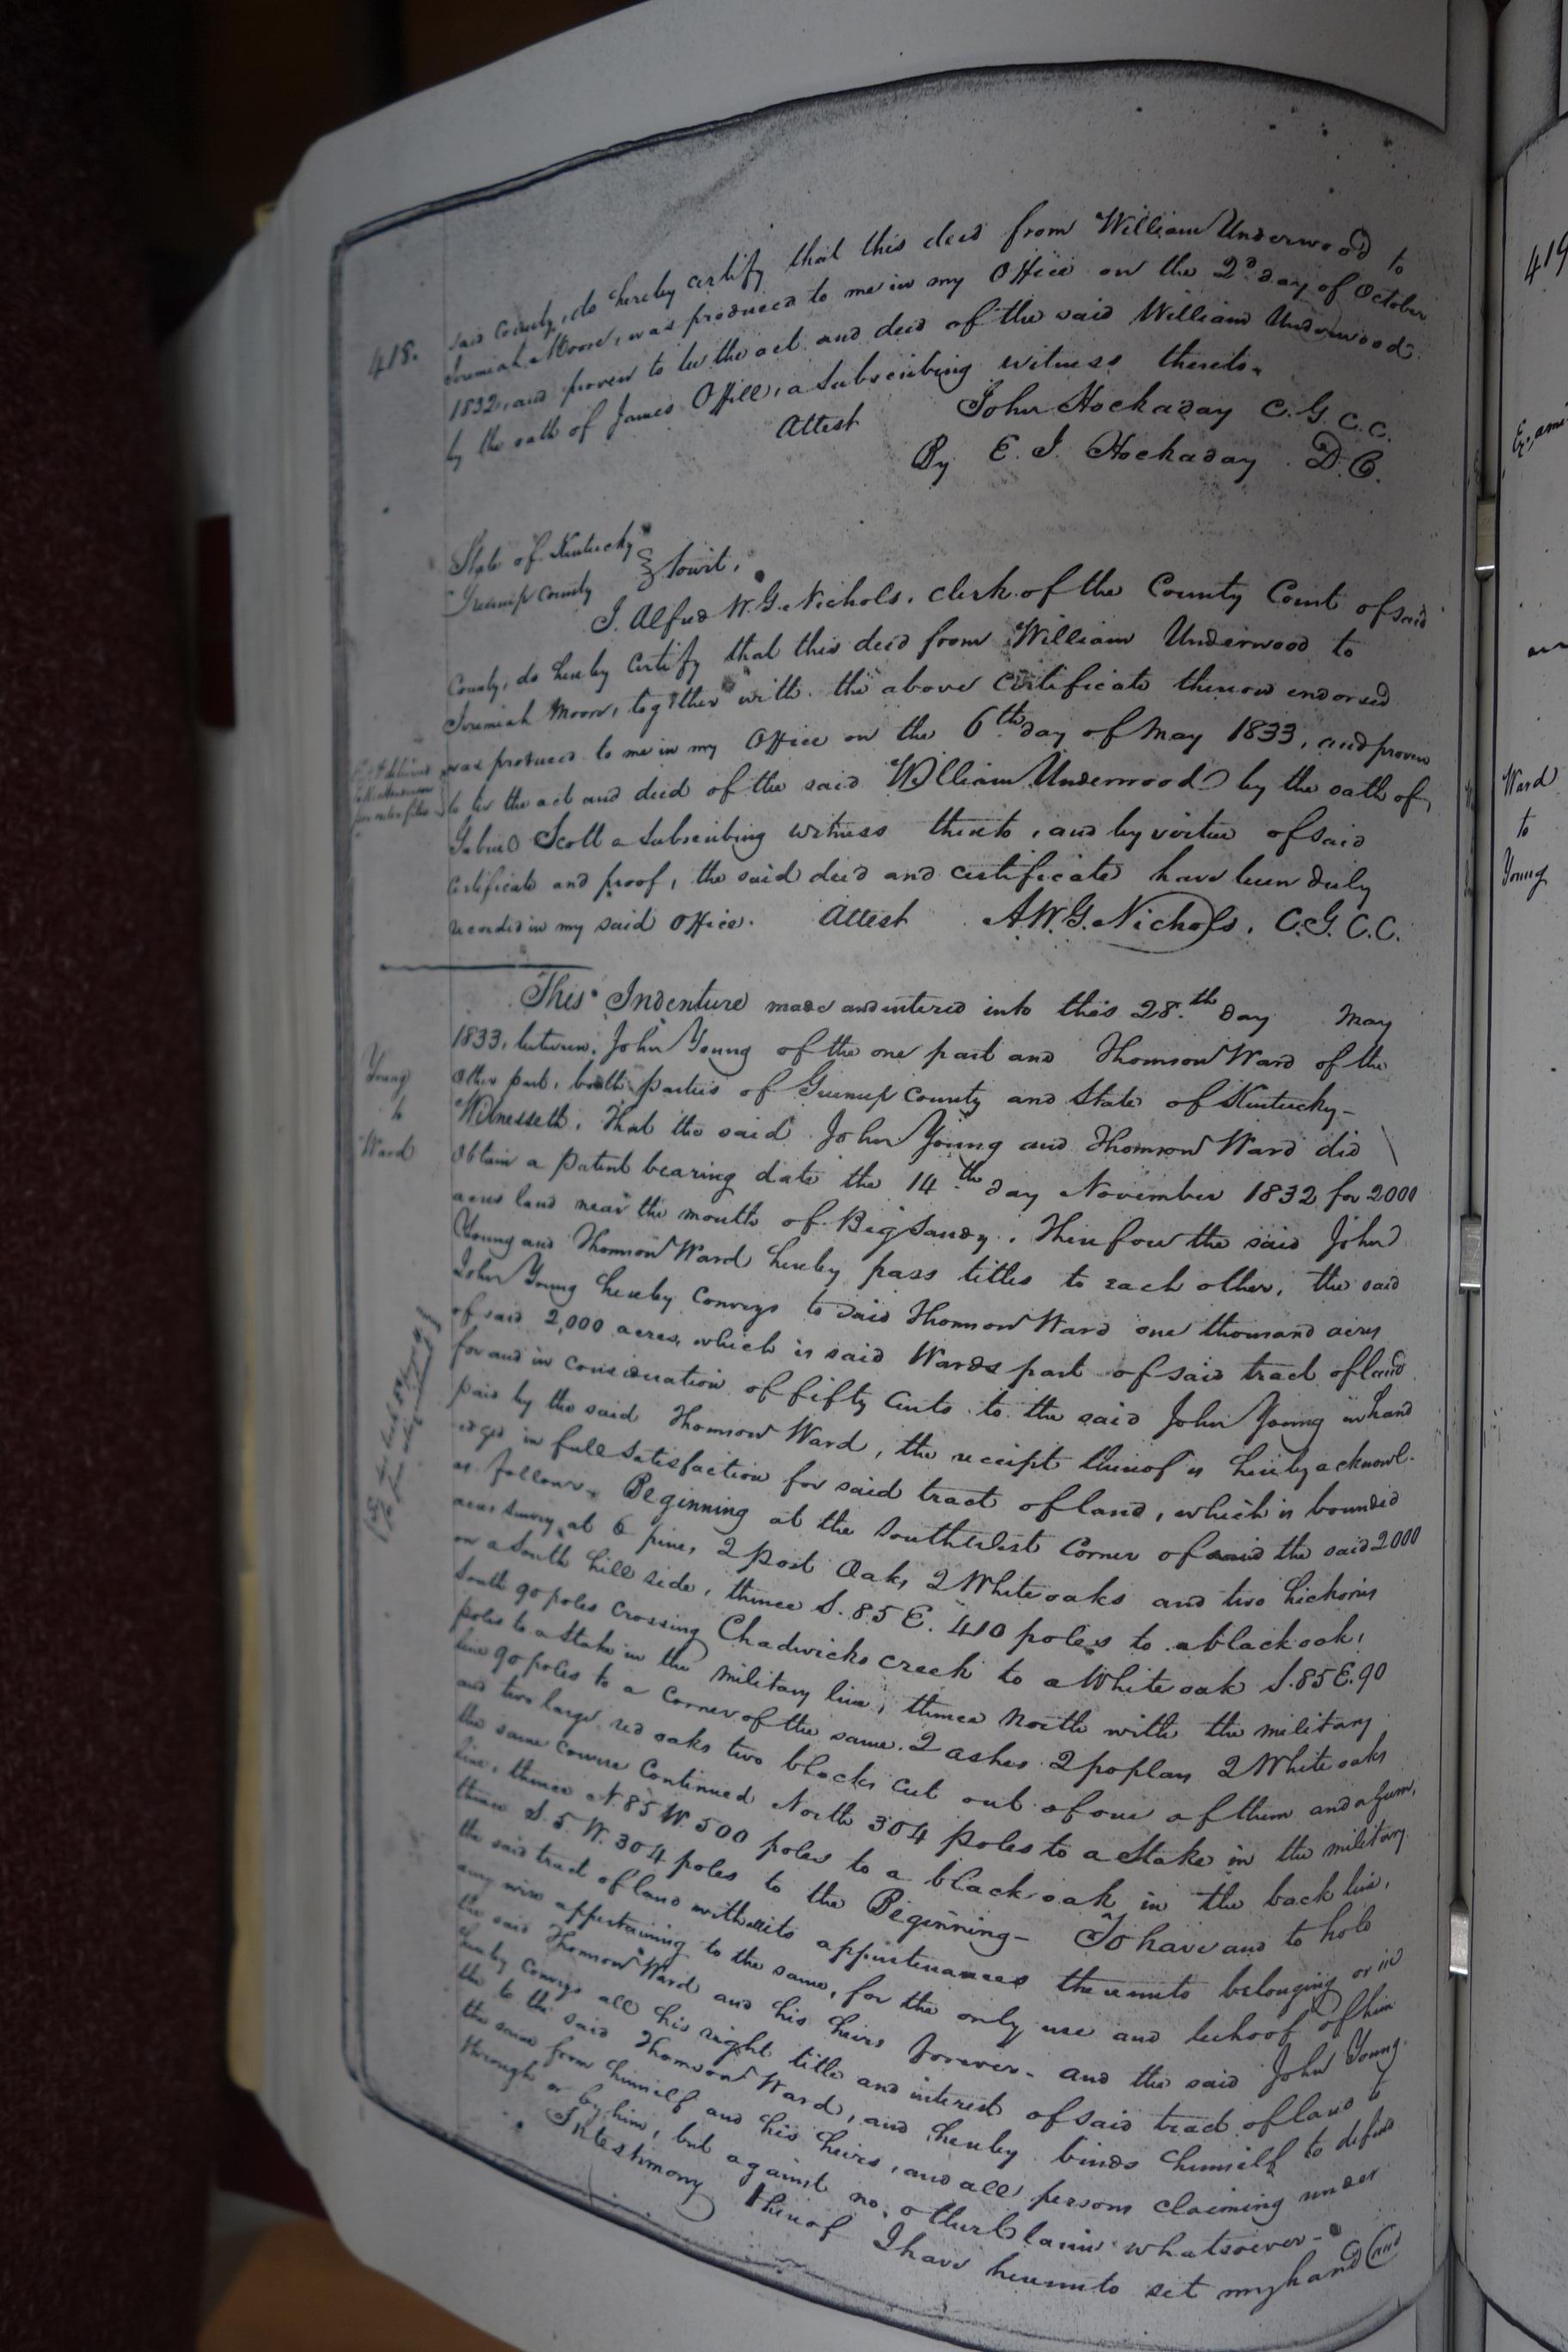 418.
said County, do hereby certify that this deed from William Underwood to
Jeremiah Moore, was produced to me in my Office on the 2d day of October
1832, and proven to be the act and deed of the said William Underwood
by the oath of James Offill, a Subscribing witness thereto.
Attest John Hockaday C. G. C. C.
By E. I. Hockaday D. C.
State of Kentucky
Greenup County } towit,
I. Alfred W. G. Nichols, clerk of the County Court of said
County, do hereby Certify that this deed from William Underwood to
Jeremiah Moore, together with the above certificate thereon endorsed
was produced to me in my Office on the 6th day of May 1833, and proven
to be the act and deed of the said William Underwood by the oath of
Gabriel Scott a Subscribing witness thereto, and by virtue of said
Certificate and proof, the said deed and certificate have been duly
recorded in my said Office. Attest A. W. G. Nichols, C. G. C. C.
This Indenture made and entered into this 28th day May
1833, between John Young of the one part and Thomson Ward of the
Other part, both parties of Greenup County and State of Kentucky-
Young
to
Ward
Witnesseth, That the said John Young and Thomson Ward did
Obtain a patent bearing date the 14th day November 1832 for 2000
acres land near the mouth of Big Sandy. Therefore the said John
Young and Thomson Ward hereby pass titles to each other, the said
John Young hereby Conveys to said Thomson Ward one thousand acres
of said 2,000 acres, which is said Wards part of said tract of land
for and in consideration of fifty Cents to the said John Young in hand
paid by the said Thomson Ward, the receipt thereof is hereby acknowl-
edged in full Satisfaction for said tract of land, which is bounded
as follows, Beginning at the Southwest Corner of said the said 2000
acres survey at 6 pines, 2 post Oaks, 2 White oaks and two hickories
on a South hill side, thence S. 85 E. 410 poles to a black oak,
South 90 poles Crossing Chadwicks creek to a White oak S. 85 E. 90
poles to a Stake in the military line, thence North with the military
line 90 poles to a Corner of the same. 2 ashes 2 poplars 2 White oaks
and two large red oaks two blocks cut out of one of them and a Gum,
the same course Continued North 304 poles to a Stake in the military
line, thence N. 85 W. 500 poles to a black oak in the back line,
thence S. 5. W. 304 poles to the Beginning- To have and to hold
the said tract of land with its appurtenances thereunto belonging or in
any wise appertaining to the same, for the only use and behoof of him
the said Thomson Ward and his heirs forever- and the said John Young
hereby Conveys all his right title and interest of said tract of land to
the to the said Thomson Ward, and hereby binds himself to defend
the same from himself and his heirs, and all persons claiming under
through or by him, but against no other Claim whatsoever-
In testimony thereof I have hereunto set my hand and
419
Ward
to
Young